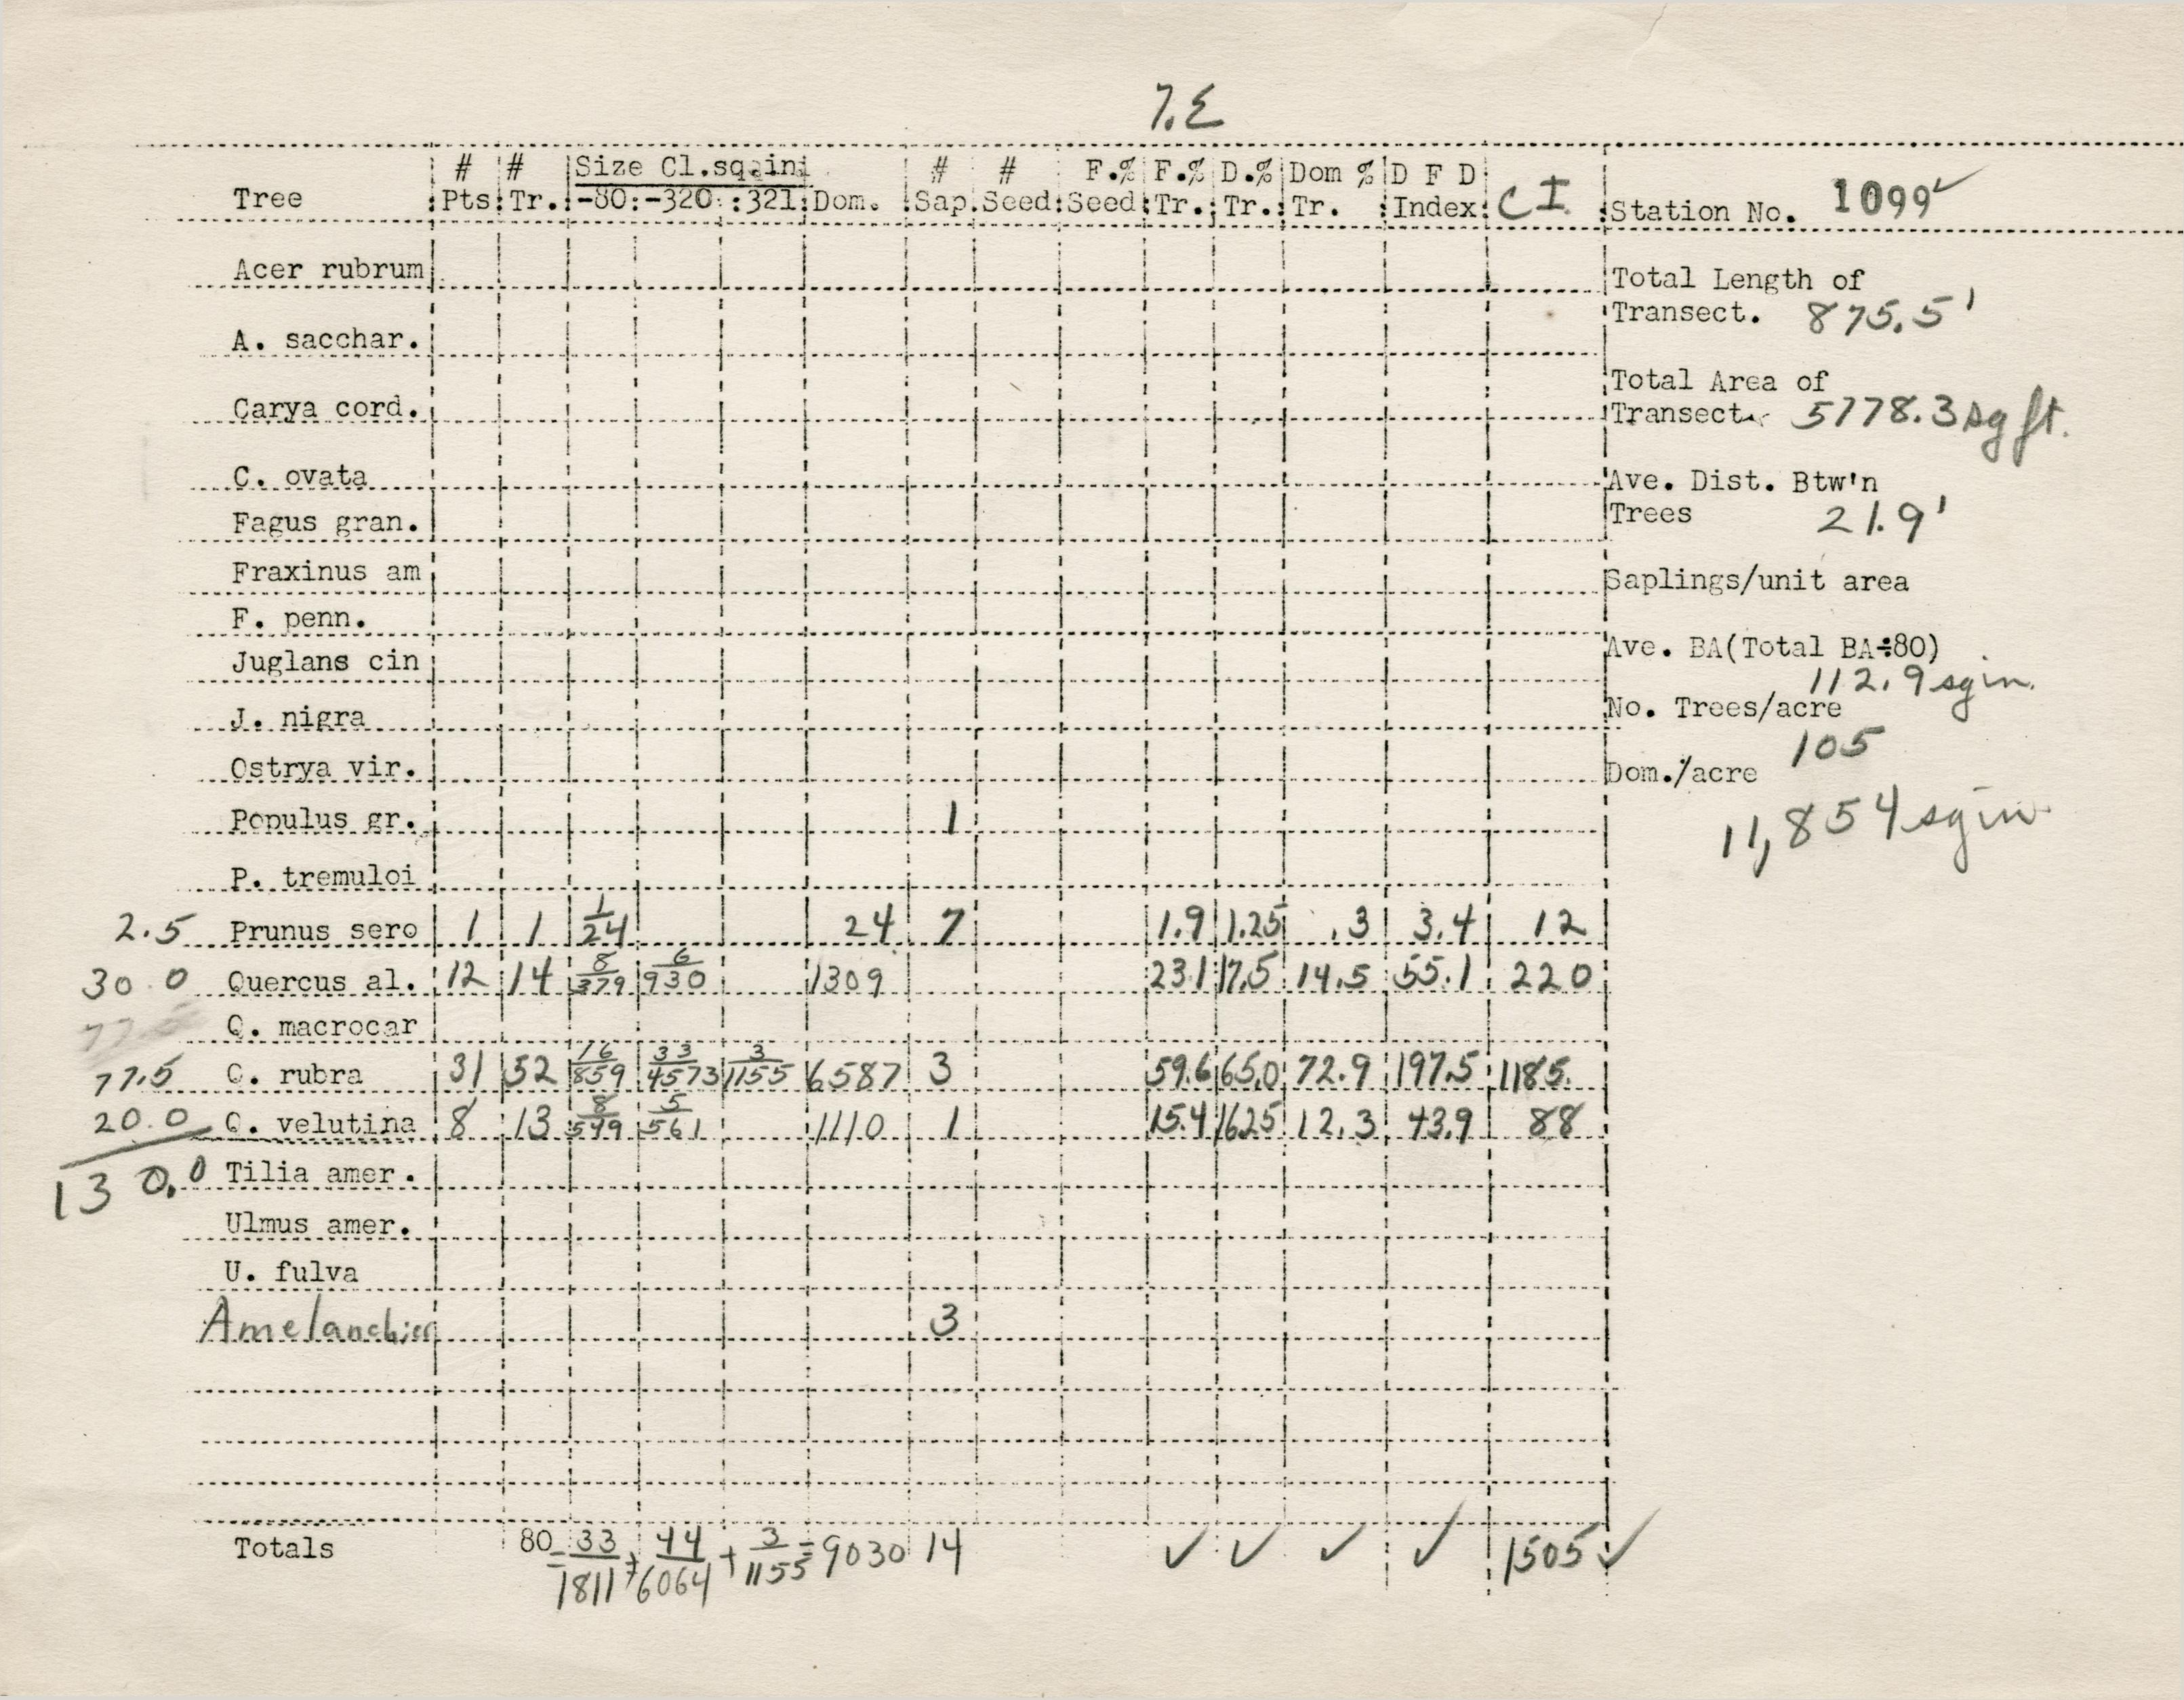 7.E
# # Size Cl.sqaini # # F.% F.% D.% Dom % D F D
Tree Pts Tr. -80:-320:321 Dom. Sap. Seed Seed Tr. Tr. Tr. Index CI Station No. 1099✓
Acer rubrum
Total Length of
Transect. 875.5'
A. sacchar.
Total Area of
Carya cord.
Transect. 5778.3 sq ft.
C. ovata
Ave. Dist. Btw'n
Fagus gran.
Trees 21.9'
Fraxinus am
Saplings/unit area
F. penn.
Ave. BA(Total BA÷80)
Juglans cin
112.9 sq in.
J. nigra
No. Trees/acre
105
Ostrya vir.
Dom./acre
11,854 sq in
Populus gr. 1
P. tremuloi
2.5 Prunus sero 1 1 1/24 24 7 1.9 1.25 .3 3.4 12
30.0 Quercus al. 12 14 8/379 6/930 1309 23.1 17.5 14.5 55.1 220
77.5 Q. macrocar
77.5 Q. rubra 31 52 16/859 33/4573 3/1155 6587 3 59.6 65.0 72.9 197.5 1185.
20.0 Q. velutina 8 13 8/549 5/561 1110 1 15.4 16.25 12.3 43.9 88
130.0 Tilia amer.
Ulmus amer.
U. fulva
Amelanchier 3
Totals 80 = 33/1811 + 44/6064 + 3/1155 = 9030 14 ✓ ✓ ✓ ✓ 1505 ✓